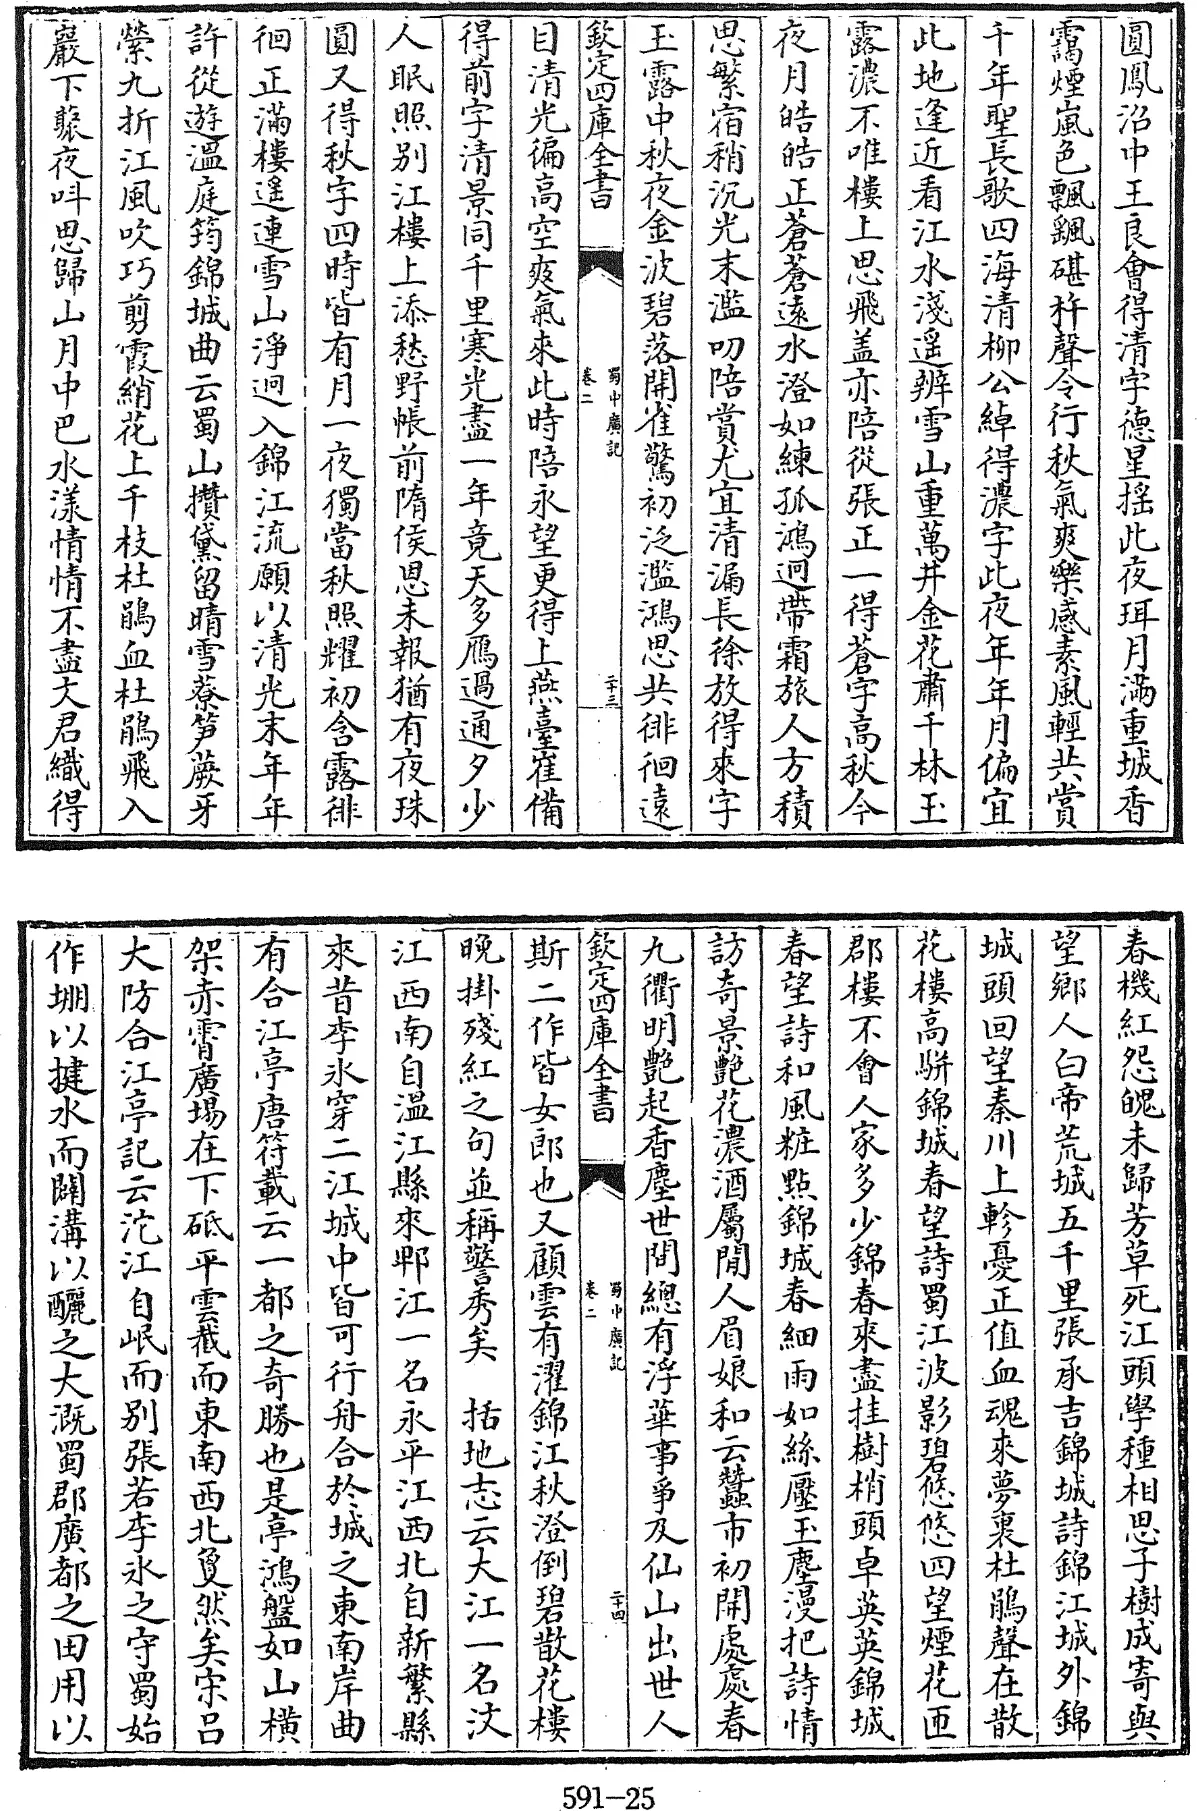 圓鳳沼中王良會得清字德星揺此夜珥月滿重城香
靄煙嵐色飄颻碪杵聲令行秋氣爽樂感素風輕共賞
千年聖長歌四海清柳公綽得濃字此夜年年月偏宜
此地逢近看江水淺遥辨雪山重萬井金花肅千林玉
露濃不唯樓上思飛盖亦陪從張正一得蒼字高秋今
夜月皓皓正蒼蒼遠水澄如練孤鴻迥帶霜旅人方積
思繁宿稍沉光末濫叨陪賞尤宜清漏長徐放得來字
玉露中秋夜金波碧落開雀驚初泛濫鴻思共徘徊遠
欽定四庫全書
蜀中廣記
卷二
二十三
目清光徧高空爽氣來此時陪永望更得上燕臺崔備
得前字清景同千里寒光盡一年竟天多鴈過通夕少
人眠照别江樓上添愁野帳前隋侯恩未報猶有夜珠
圓又得秋字四時皆有月一夜獨當秋照耀初含露徘
徊正滿樓遥連雪山淨迥入錦江流願以清光末年年
許從遊溫庭筠錦城曲云蜀山攢黛留晴雪蔘笋蕨牙
縈九折江風吹巧剪霞綃花上千枝杜鵑血杜鵑飛入
巖下䕺夜呌思歸山月中巴水漾情情不盡文君織得
春機紅怨魄未歸芳草死江頭學種相思子樹成寄與
望鄉人白帝荒城五千里張承吉錦城詩錦江城外錦
城頭回望秦川上軫憂正值血魂來夢裏杜鵑聲在散
花樓高駢錦城春望詩蜀江波影碧悠悠四望煙花匝
郡樓不會人家多少錦春來盡挂樹梢頭卓英英錦城
春望詩和風粧點錦城春細雨如絲壓玉塵漫把詩情
訪奇景艷花濃酒屬閒人眉娘和云蠶市初開處處春
九衢明艷起香塵世間總有浮華事爭及仙山出世人
欽定四庫全書
蜀中廣記
卷二
二十四
斯二作皆女郎也又顧雲有濯錦江秋澄倒碧散花樓
晚掛殘紅之句並稱警秀矣　括地志云大江一名汶
江西南自溫江縣來郫江一名永平江西北自新繁縣
來昔李氷穿二江城中皆可行舟合於城之東南岸曲
有合江亭唐符載云一都之奇勝也是亭鴻盤如山橫
架赤霄廣場在下砥平雲截而東南西北敻然矣宋吕
大防合江亭記云沱江自岷而别張若李氷之守蜀始
作堋以揵水而闢溝以釃之大溉蜀郡廣都之田用以
591-25